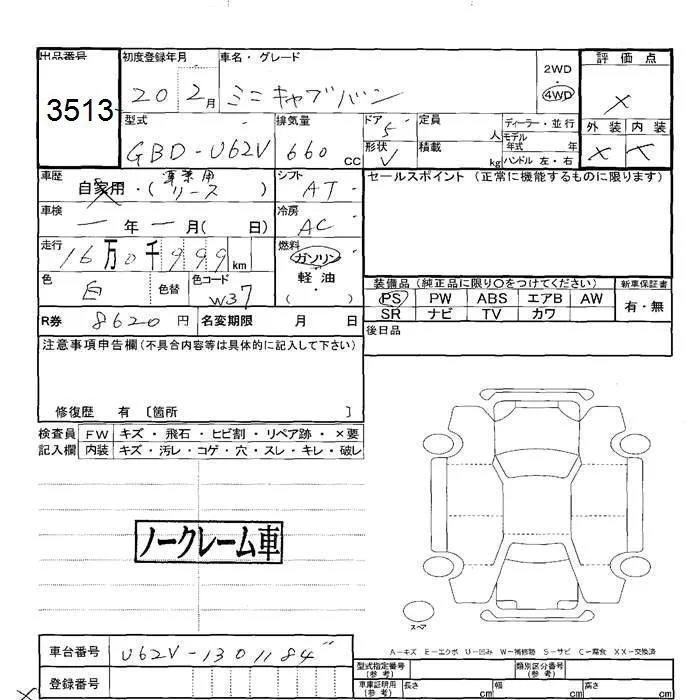 出品番号 初度登録年月 車名・グレード 評価点
3513 20 2月 ミニキャブバン 2WD 4WD ×
型式 排気量 ドア 5 定員 人 ディーラー・並行 外装 内装
GBD-U62V 660 CC 形状 V 積載 kg モデル年式 年 ハンドル 左・右 ×
車歴 自家用・(事業用 リース) シフト AT セールスポイント (正常に機能するものに限ります)
車検 ー年ー月( 日) 冷房 AC
走行 16万0千999km 燃料 ガソリン
色 白 色替 色コード W37 軽油 ・( )
装備品 (純正品に限り○をつけてください) 新車保証書
PS PW ABS エアB AW 有・無
SR ナビ TV カワ
R券 8620円 名変期限 月 日 後日品
注意事項申告欄(不具合内容等は具体的に記入して下さい)
修復歴 有 〔箇所 〕
検査員 FW キズ・飛石・ヒビ割・リペア跡・×要
記入欄 内装 キズ・汚レ・コゲ・穴・スレ・キレ・破レ
ノークレーム車
スペア
A−キズ E−エクボ U−凹み W−補修跡 S−サビ C−腐食 XX−交換済
車台番号 U62V-1301184 型式指定番号(参考) 類別区分番号(参考)
登録番号 車庫証明用(参考) 長さ cm 幅 cm 高さ cm
×